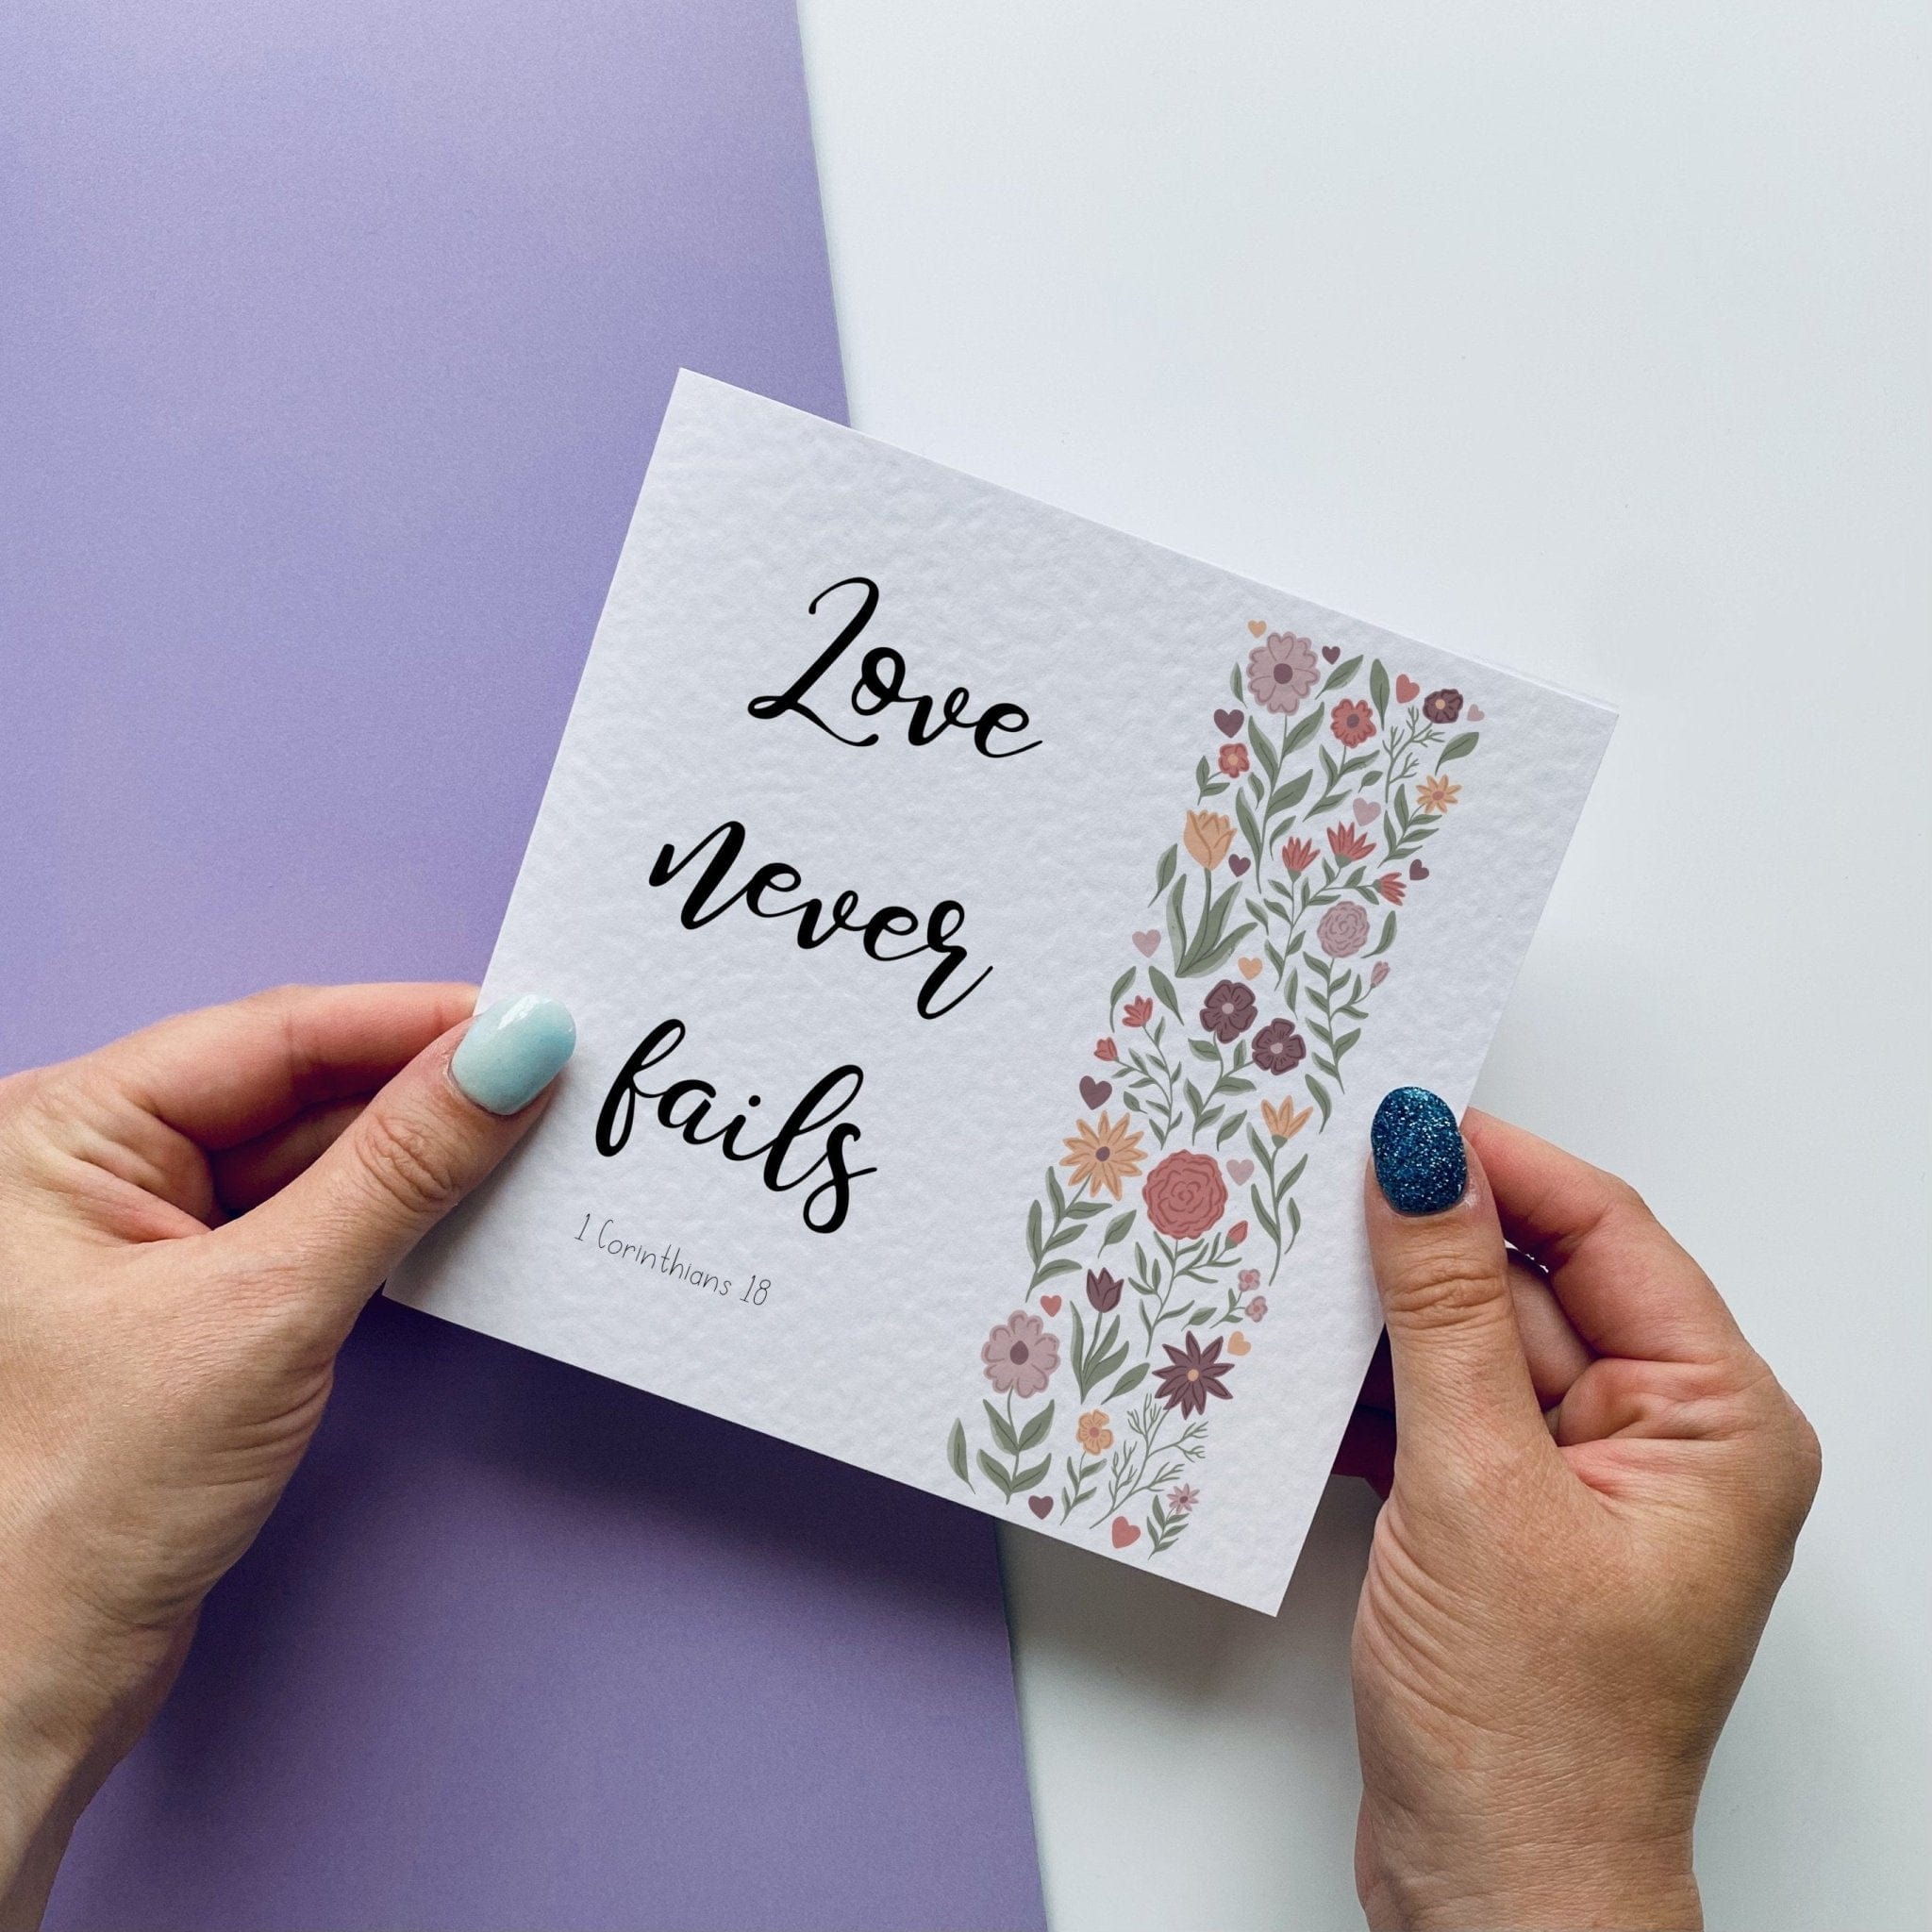 Love
never
fails
1 Corinthians 18